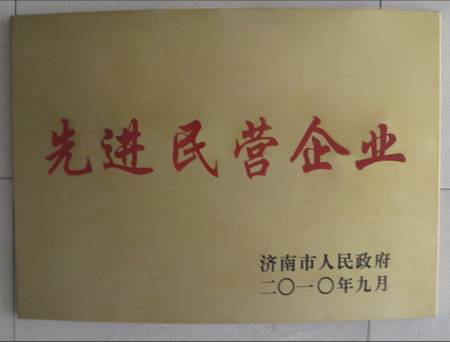 先进民营企业
济南市人民政府
二〇一〇年九月